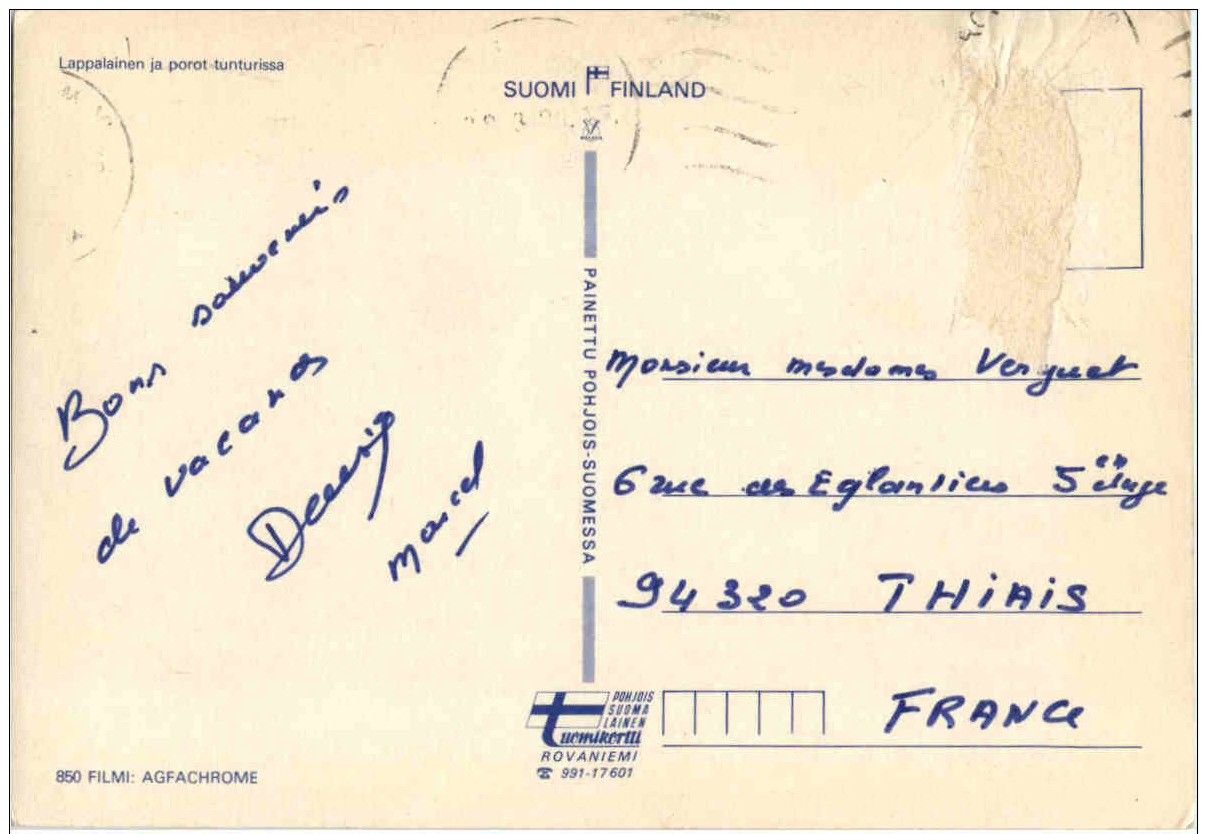 Lappalainen ja porot tunturissa
SUOMI FINLAND
Bons souvenirs
de vacances
Marcel
PAINETTU POHJOIS-SUOMESSA
Monsieur mesdames Verguet
6 rue des Eglantiers 5 étage
94320 THIAIS
FRANCE
POHJOIS
SUOMA
LAINEN
tuomikortti
ROVANIEMI
☎ 991-17601
850 FILMI: AGFACHROME